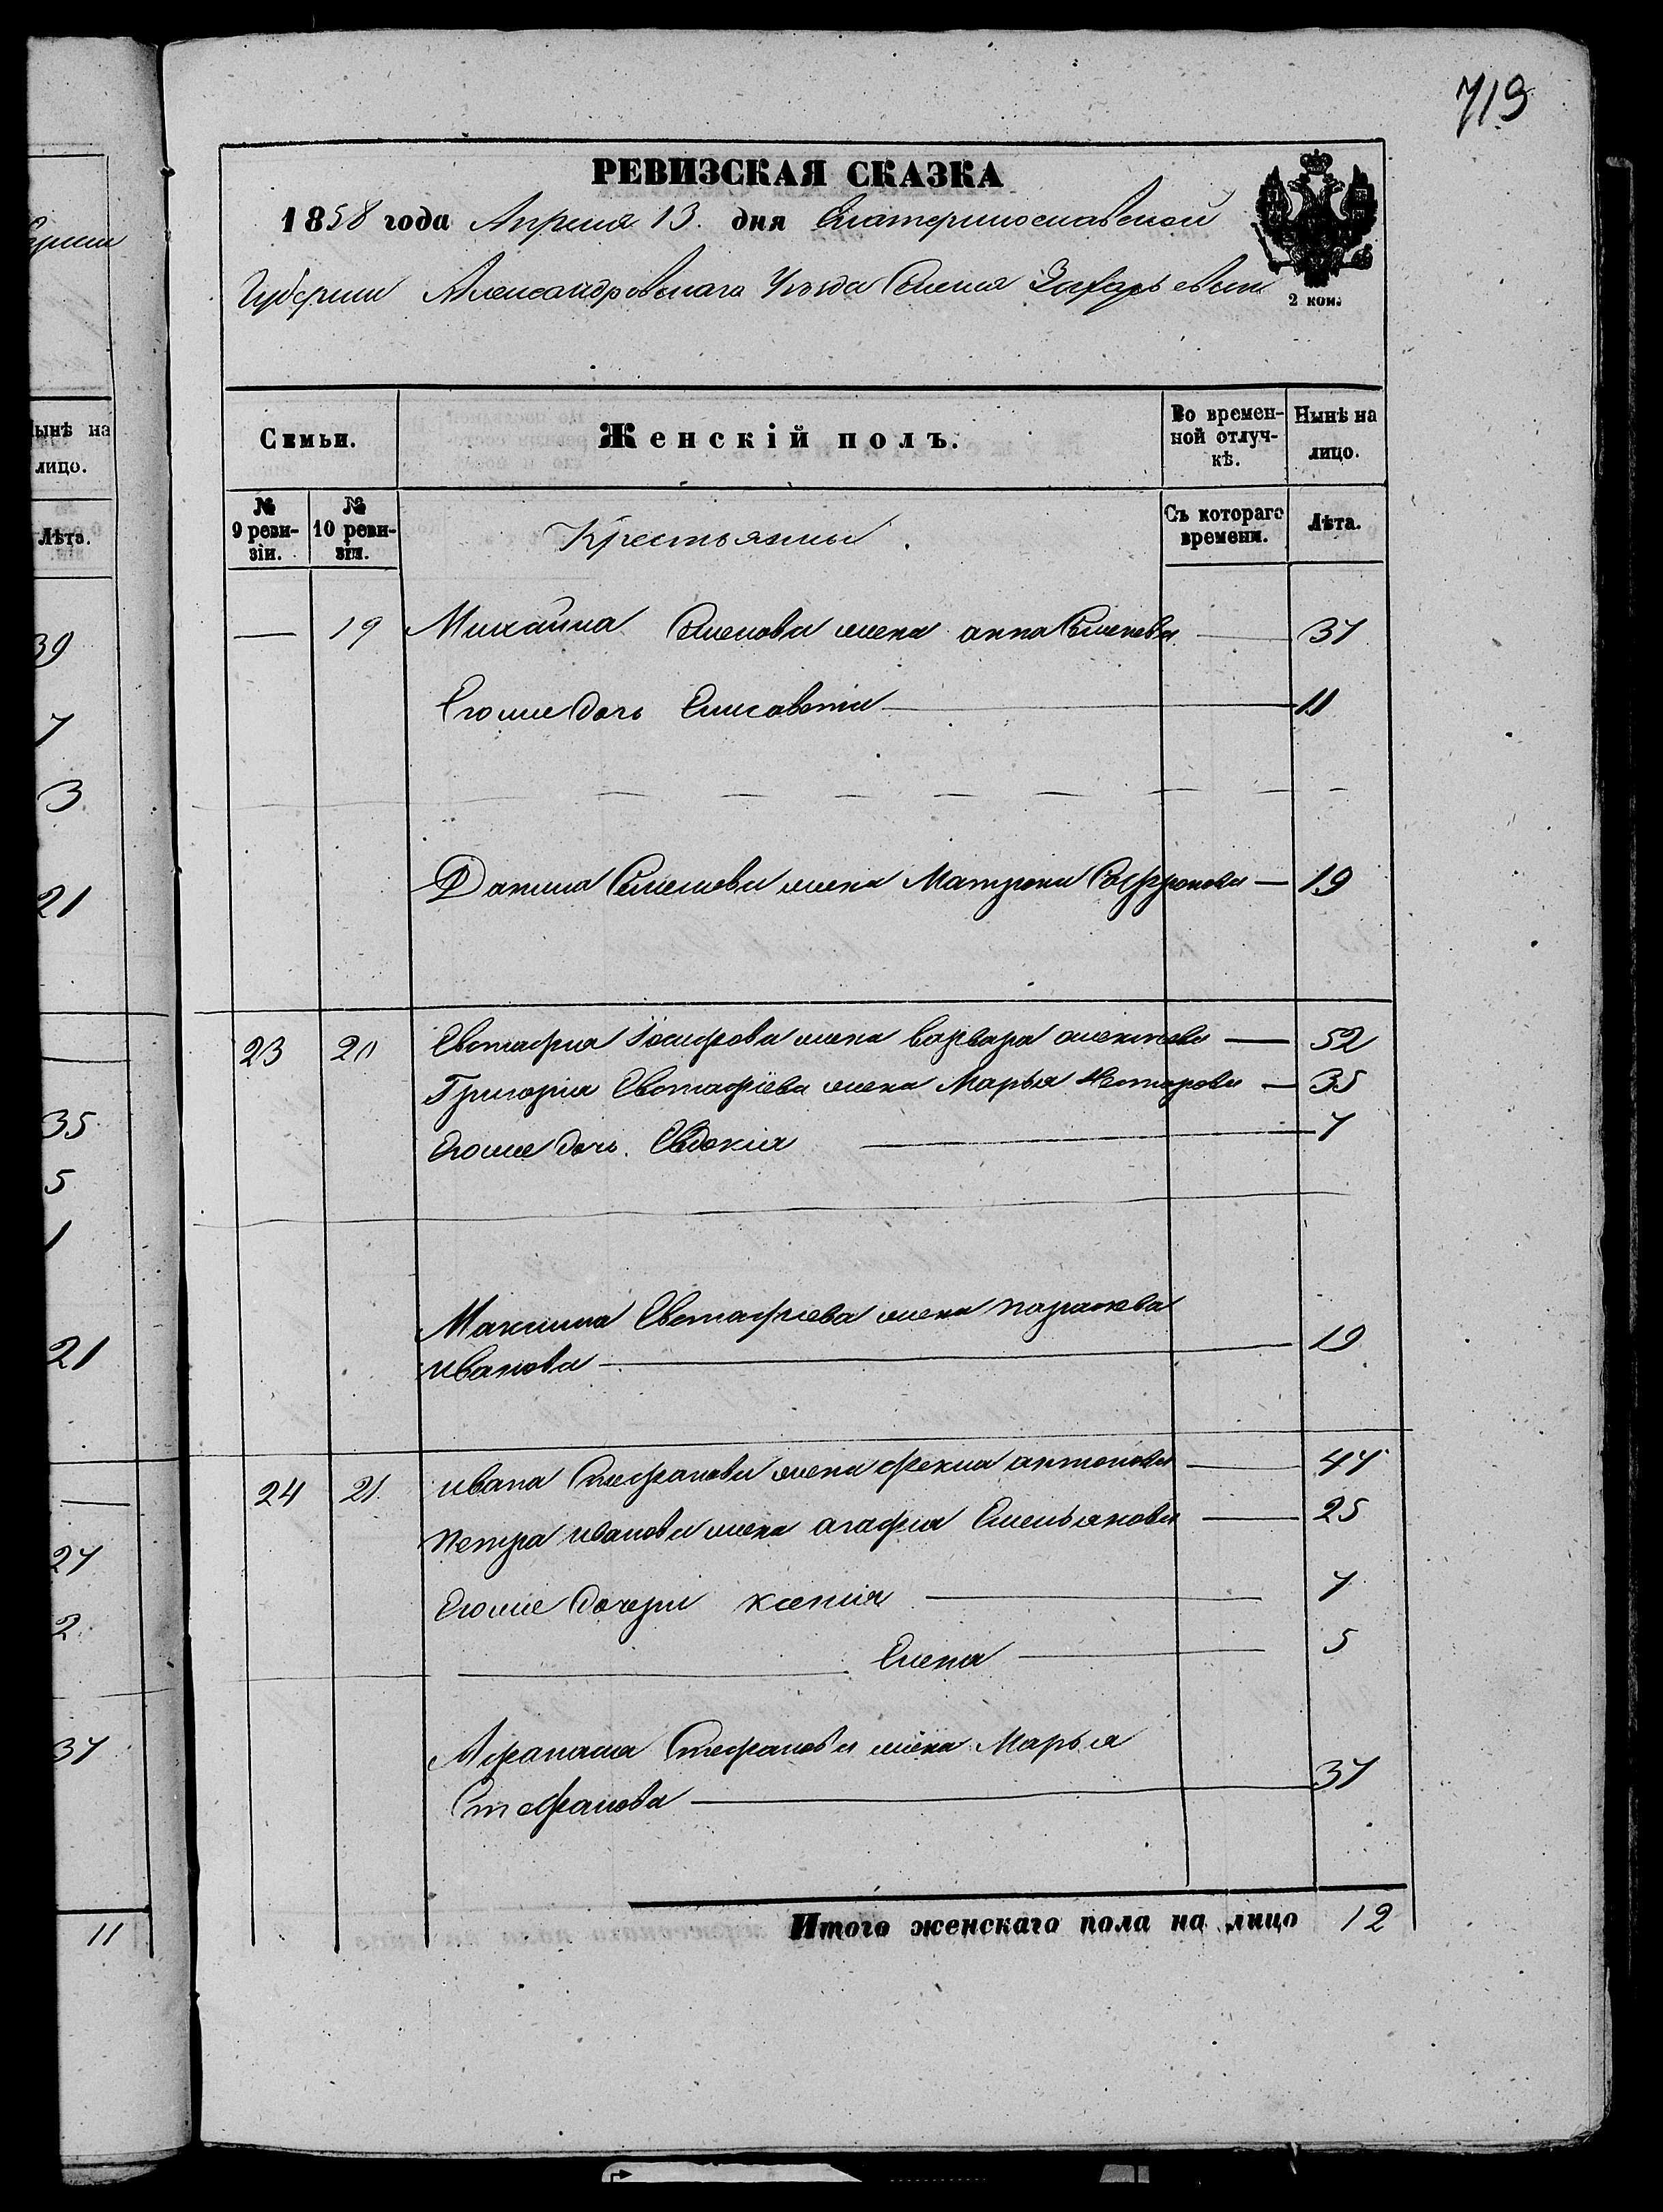 719
РЕВИЗСКАЯ СКАЗКА
1858 года Апреля 13. дня Екатеринославской
Губернии Александровскаго Уезда Селения Захарьевки
2 коп.
Семьи.
Женскій полъ.
Во времен-
ной отлуч-
кѣ.
Нынѣ на
лицо.
№
9 реви-
зіи.
№
10 реви-
зіи.
Крестьянны
Съ котораго
времени.
Лѣта.
— 19 Михайла Семенова жена анна Семенова — 37
Егоже дочь Елисавета — 11
Данила Семенова жена Матрона Софронова — 19
23 20 Евстафия Іосифова жена варвара алексеева — 52
Григория Евстафіева жена Марья Нестерова — 35
Егоже дочь. Евдокія — 7
Максима Евстафиева жена параскева
Иванова — 19
24 21. ивана Стефанова жена фекла антонова — 47
петра иванова жена агафия Емельянова — 25
Егоже дочери ксения — 7
Елена — 5
Афанасия Стефанова жена Марья
Стефанова — 37
Итого женскаго пола на лицо 12
ынѣ на
лицо.
Лѣта.
39
7
3
21
35
5
1
21
27
2
37
11